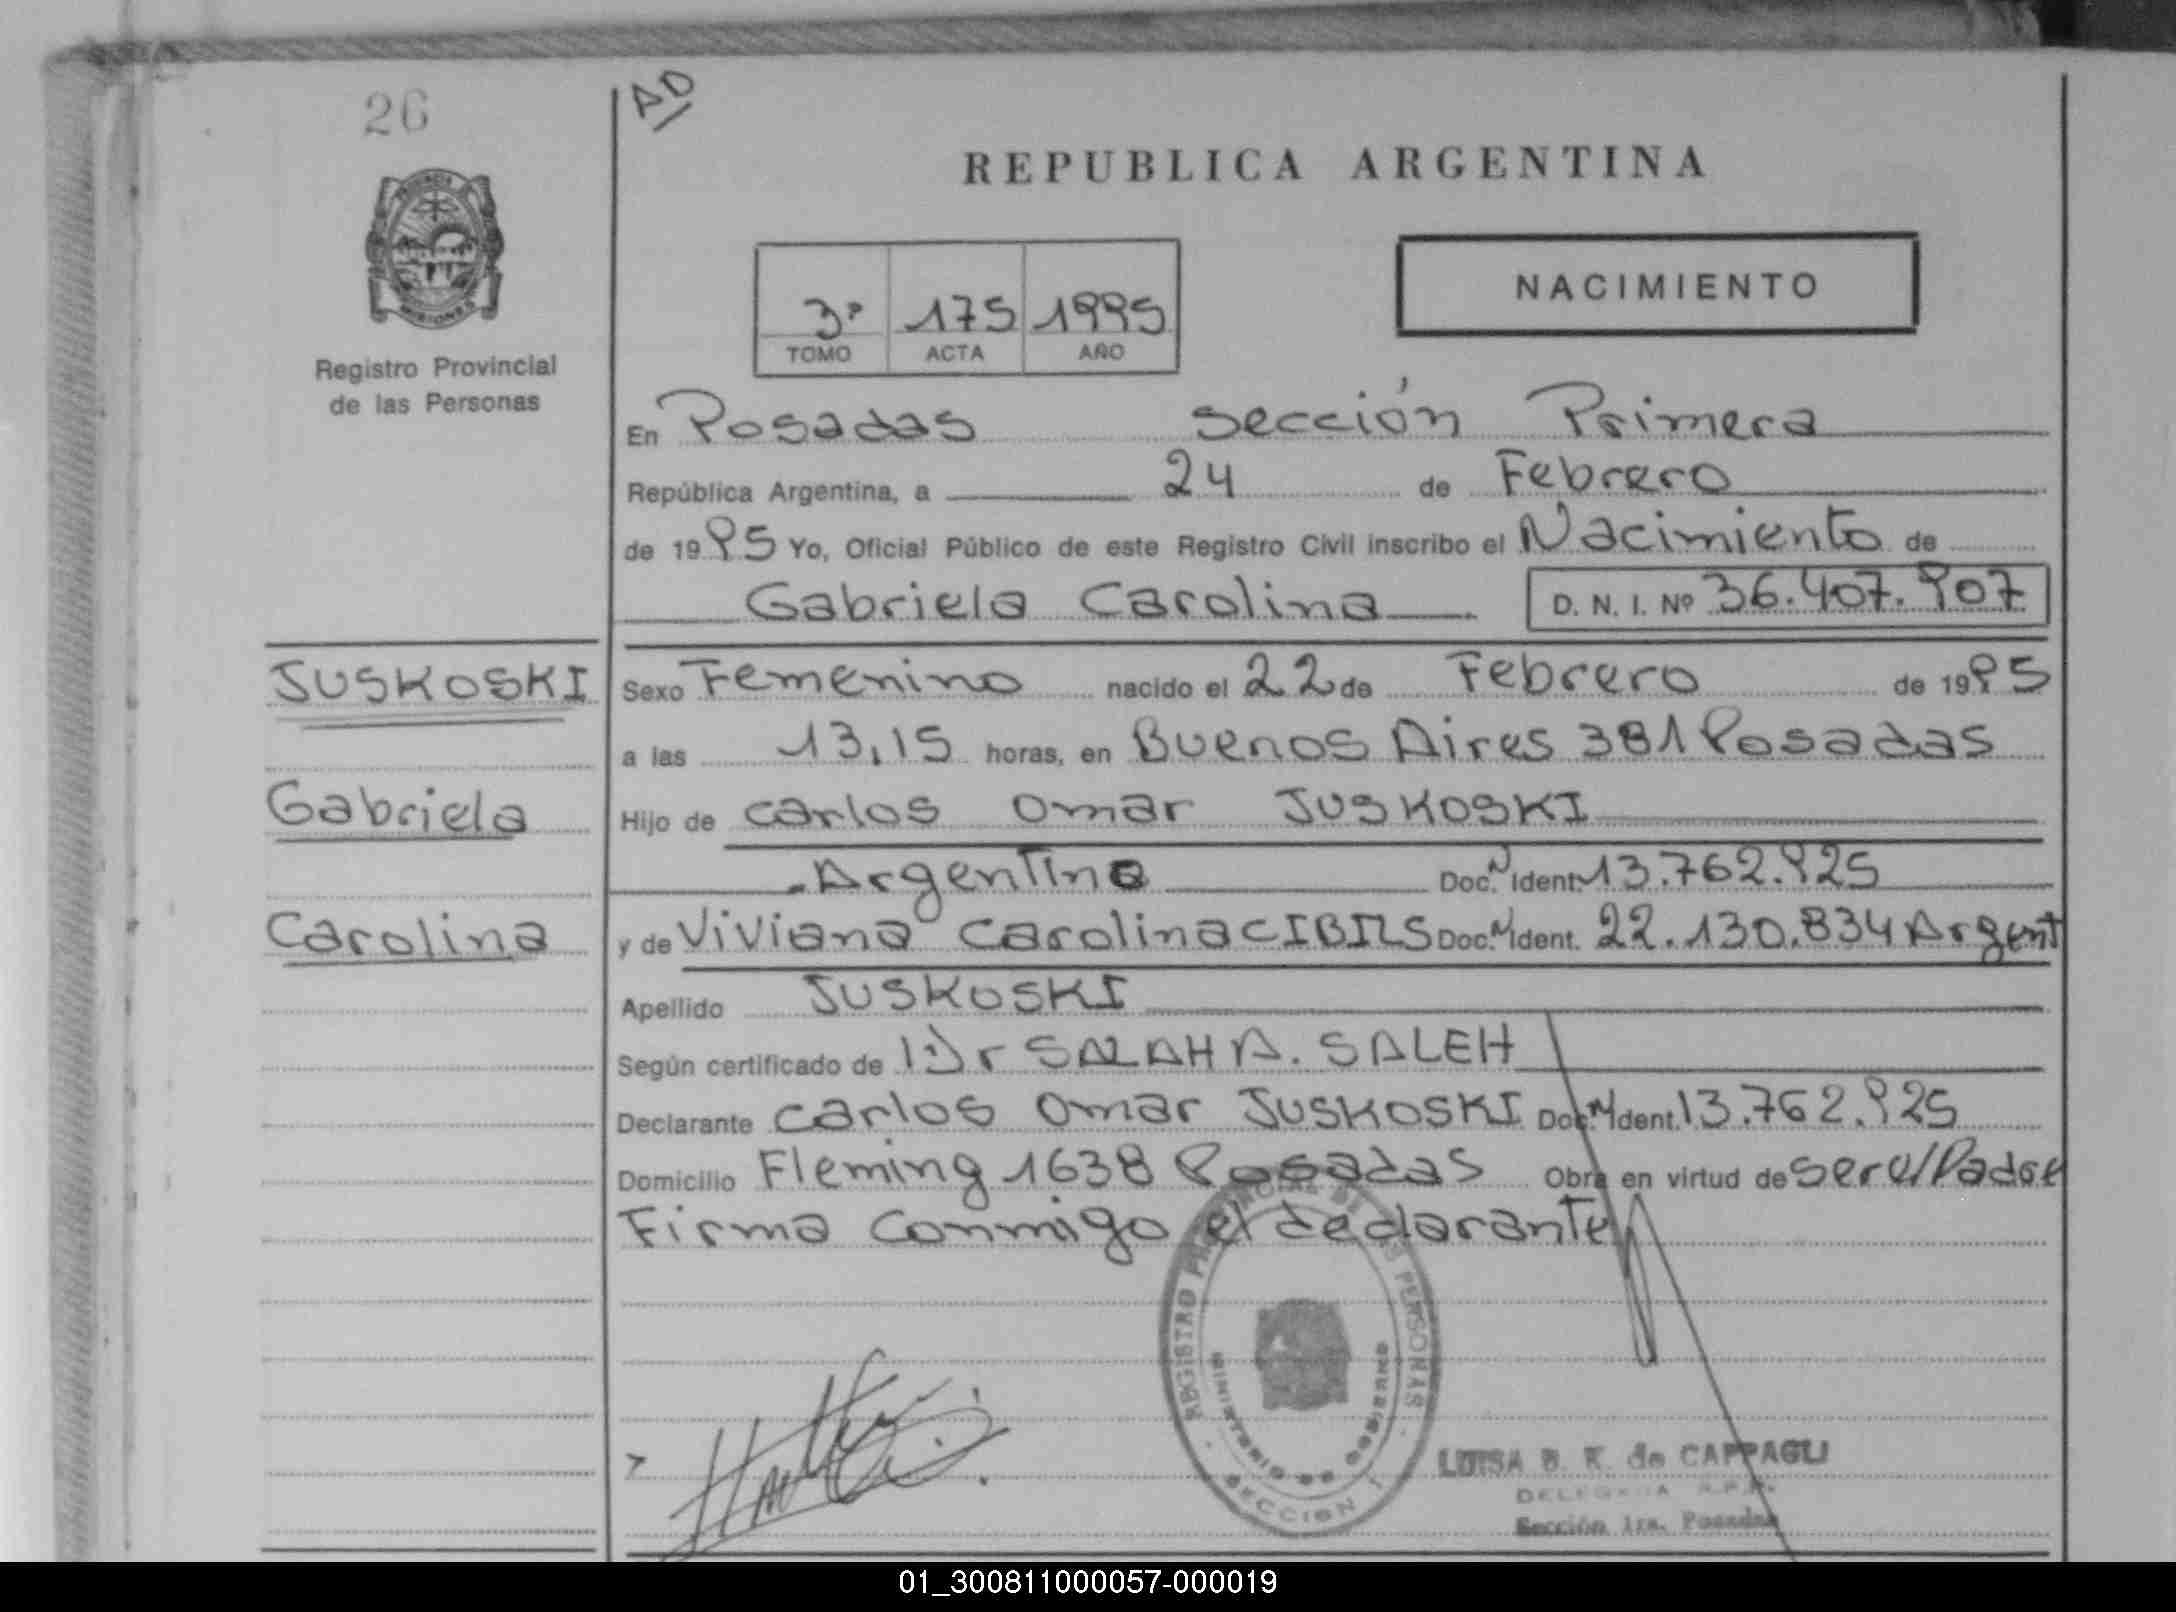 26
AD
REPUBLICA ARGENTINA
NACIMIENTO
3º 175 1995
TOMO ACTA AÑO
Registro Provincial
de las Personas
En Posadas sección Primera
República Argentina, a 24 de Febrero
de 1995 Yo, Oficial Público de este Registro Civil inscribo el Nacimiento de
Gabriela Carolina D. N. I. Nº 36.407.907
JUSKOSKI
Sexo Femenino nacido el 22 de Febrero de 1995
a las 13,15 horas, en Buenos Aires 381 Posadas
Gabriela
Hijo de Carlos Omar JUSKOSKI
Argentino Doc. N Ident. 13.762.925
Carolina
y de Viviana Carolina CIBILS Doc. N Ident. 22.130.834 Argent
Apellido JUSKOSKI
Según certificado de Dr SALAH A. SALEH
Declarante Carlos Omar JUSKOSKI Doc. N Ident. 13.762.925
Domicilio Fleming 1638 Posadas Obra en virtud de ser el Padre
Firma conmigo el declarante
REGISTRO PROVINCIAL DE LAS PERSONAS
MINISTERIO DE GOBIERNO
SECCION 1
LUISA B. K. de CAPPAGLI
DELEGADA R.P.P.
Sección 1ra. Posadas
01_300811000057-000019